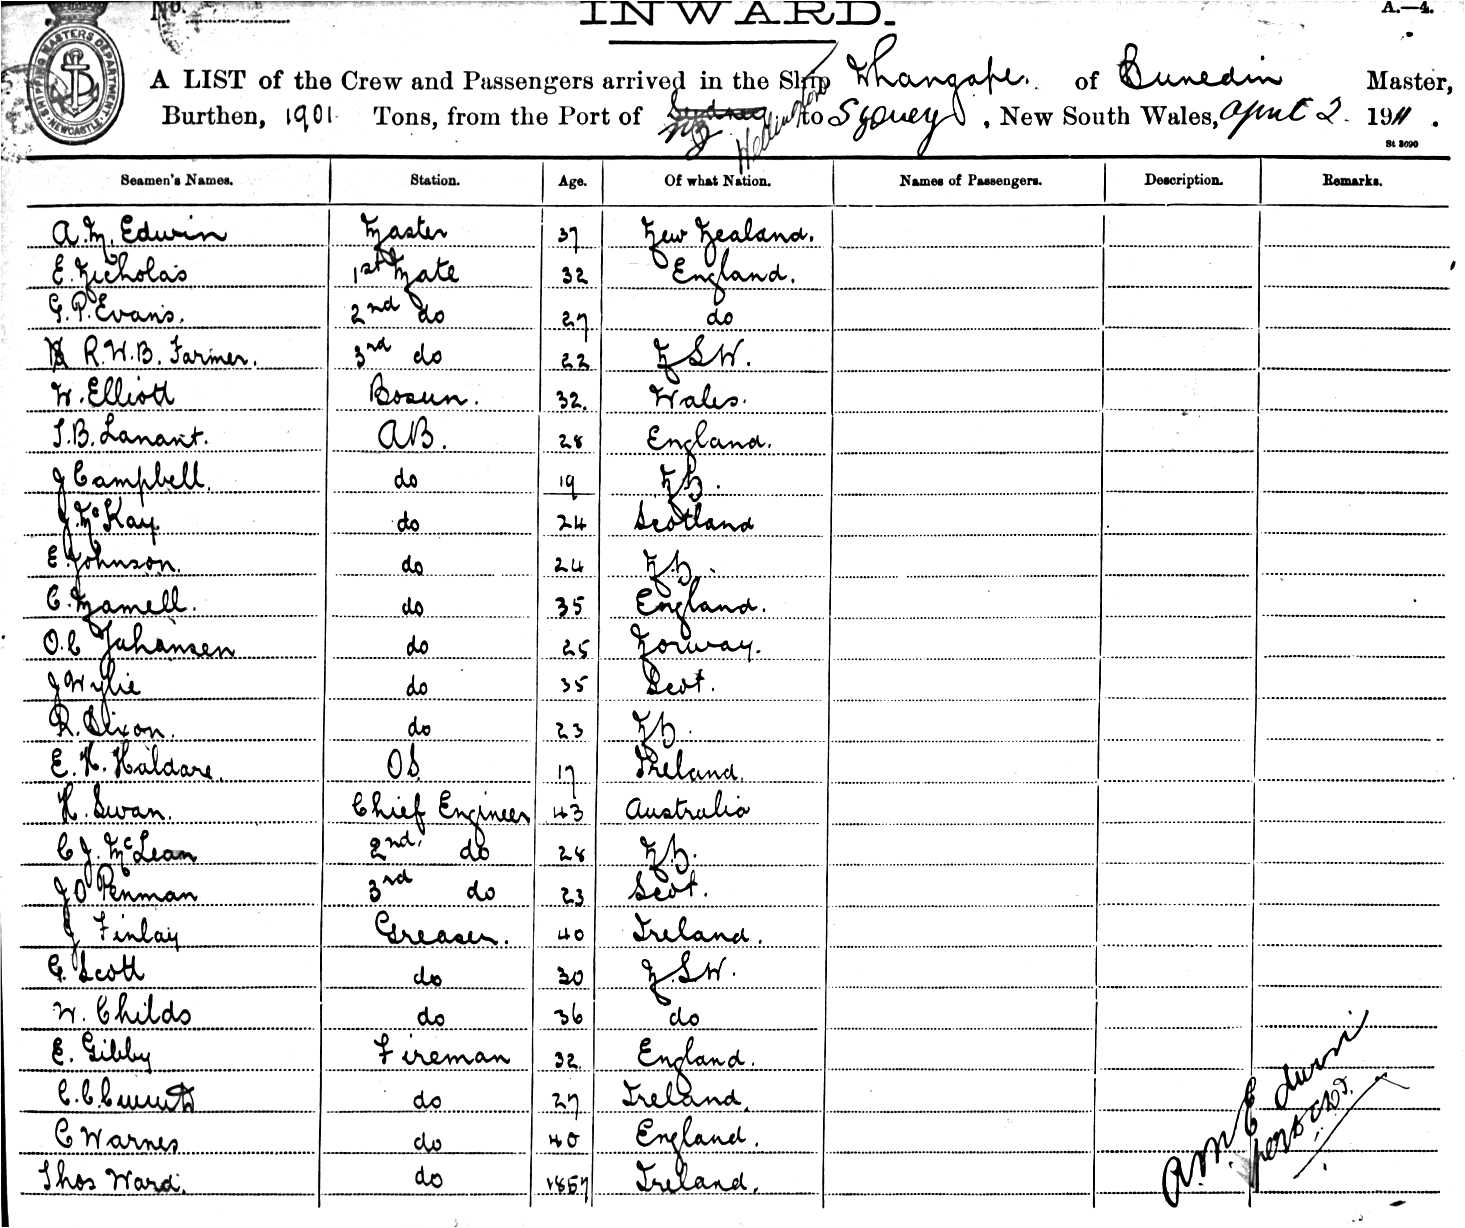 No.
INWARD.
A.—4.
SHIPPING MASTERS DEPARTMENT NEWCASTLE
A LIST of the Crew and Passengers arrived in the Ship Whangape. of Dunedin Master,
Burthen, 1901 Tons, from the Port of Sydney NZ Wellington to Sydney, New South Wales, April 2. 1911.
St 3090
Seamen's Names. Station. Age. Of what Nation. Names of Passengers. Description. Remarks.
A. M. Edwin Master 37 New Zealand.
E. Nicholas 1st Mate 32 England.
G. P. Evans. 2nd do 27 do
R. W. B. Farmer. 3rd do 22 N S W.
W. Elliott Bosun. 32. Wales.
B. Lanant. AB. 28 England.
J Campbell. do 19 NZ.
J. McKay. do 24 Scotland
E. Johnson. do 24 NZ.
C. Mamell. do 35 England.
O. C Johansen do 25 Norway.
J Wylie do 35 Scot.
R. Dixon. do 23 NZ.
E. H. Haldare. OS 17 Ireland.
H. Swan. Chief Engineer 43 Australia
C J. McLean 2nd. do 28 NZ.
J O Penman 3rd do 23 Scot.
J Finlay Greaser. 40 Ireland.
G. Scott do 30 N. S W.
W. Childs do 36 do
E. Gibby Fireman 32 England.
C. C. do 27 Ireland.
C Warnes do 40 England.
Thos Ward. do Ireland.
A M Edwin